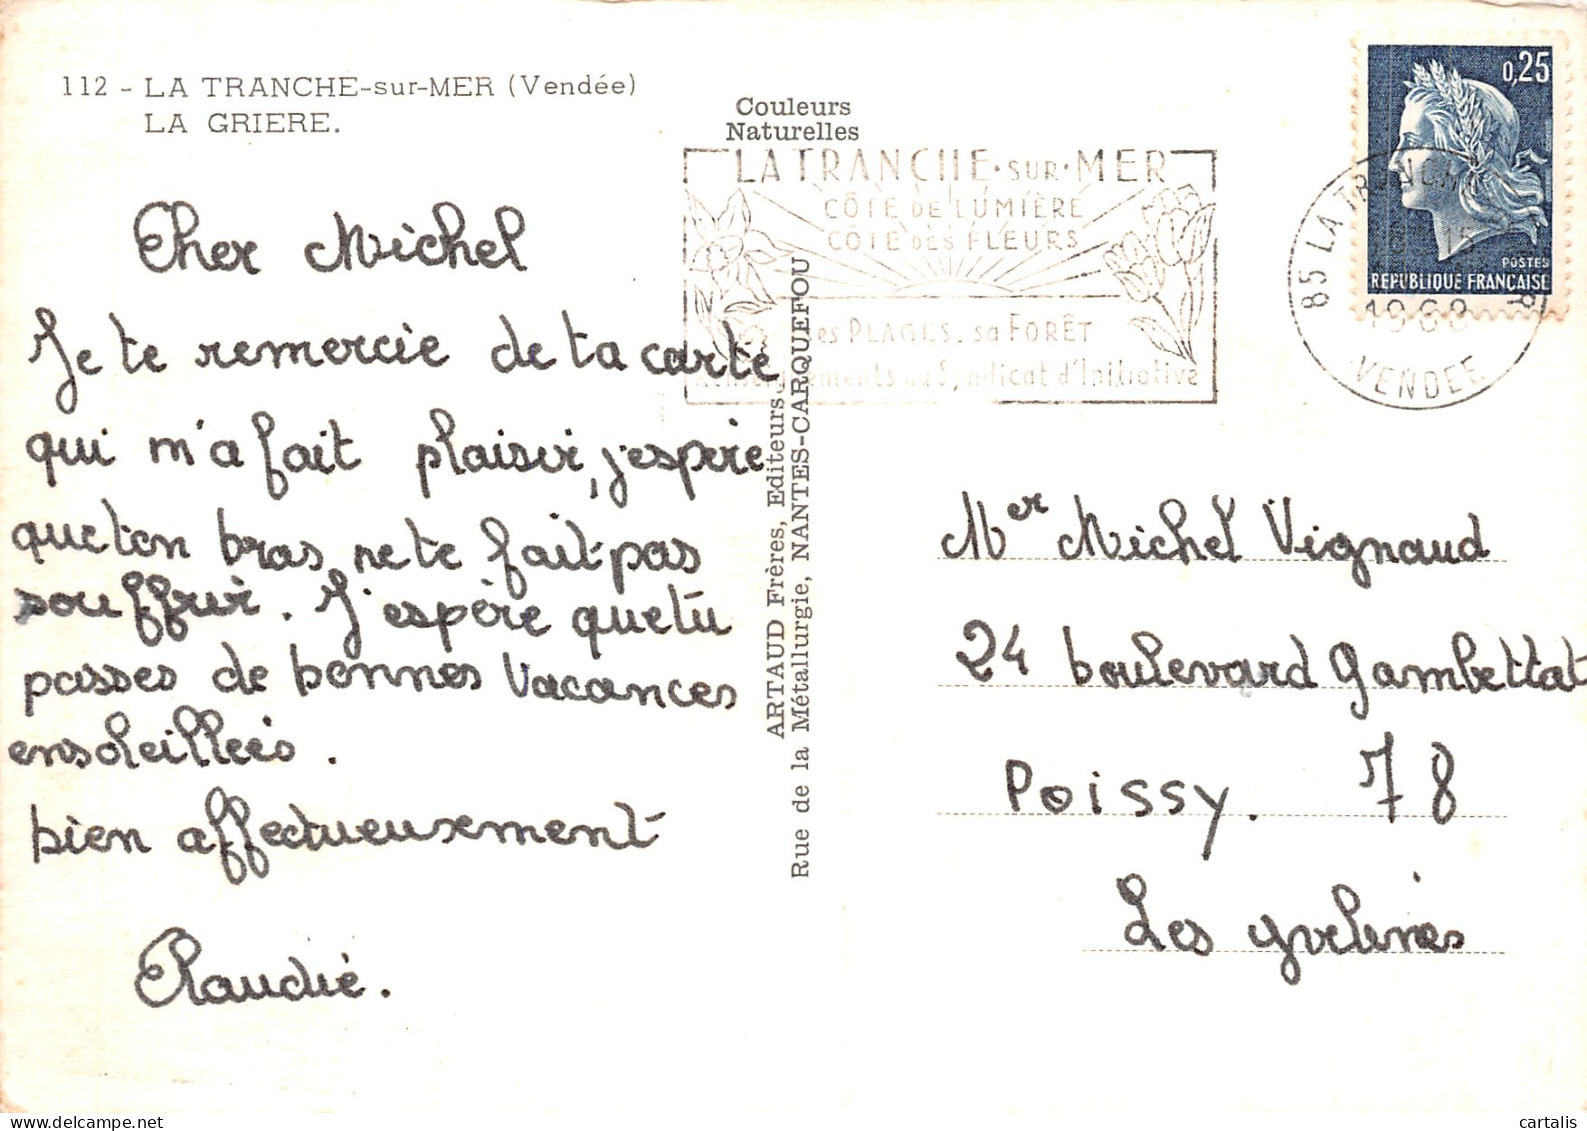 112 - LA TRANCHE-sur-MER (Vendée)
LA GRIERE.
Cher Michel
Je te remercie de ta carte
qui m'a fait plaisir, j'espère
que ton bras ne te fait pas
souffrir. J'espère que tu
passes de bonnes vacances
ensoleillées.
bien affectueusement
Claudie.
Couleurs
Naturelles
LA TRANCHE·SUR·MER
CÔTE DE LUMIÈRE
CÔTE DES FLEURS
ses PLAGES. sa FORÊT
Renseignements au Syndicat d'Initiative
ARTAUD Frères, Editeurs
Rue de la Métallurgie, NANTES-CARQUEFOU
0,25
POSTES
REPUBLIQUE FRANÇAISE
85 LA TRANCHE
1968
VENDEE
Mer Michel Vignaud
24 boulevard Gambettat
Poissy. 78
Les
cartalis